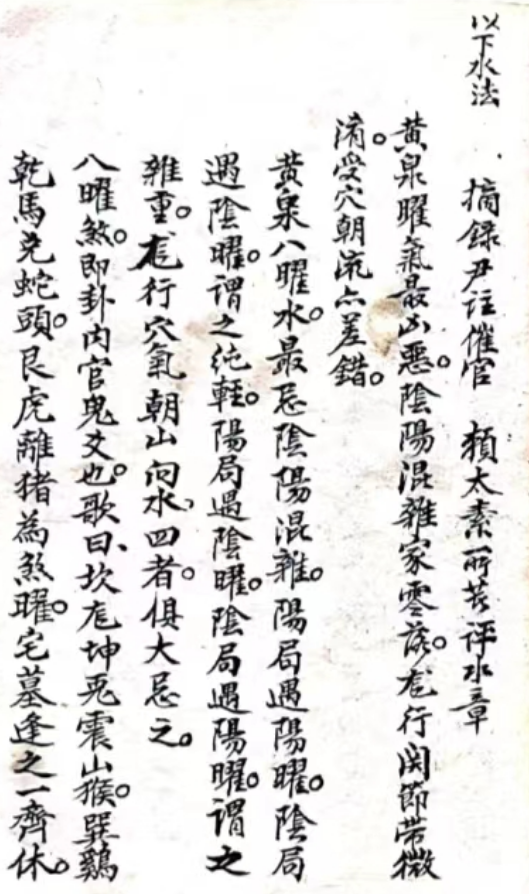 以下水法
摘録尹註催官　頼太素所著評水章
黄泉曜氣最凶惡。陰陽混雜家零落。龙行関節带微
淆。受穴朝流亦差錯。
黄泉八曜水。最忌陰陽混雜。陽局遇陽曜。陰局
遇陰曜。謂之纯輕。陽局遇陰曜。陰局遇陽曜。謂之
雜重。龙行穴氣朝山向水、四者。俱大忌之。
八曜煞。即卦内官鬼爻也。歌曰、坎龙坤兎震山猴。巽鷄
乾馬兑蛇頭。艮虎離猪為煞曜。宅墓逢之一齊休。